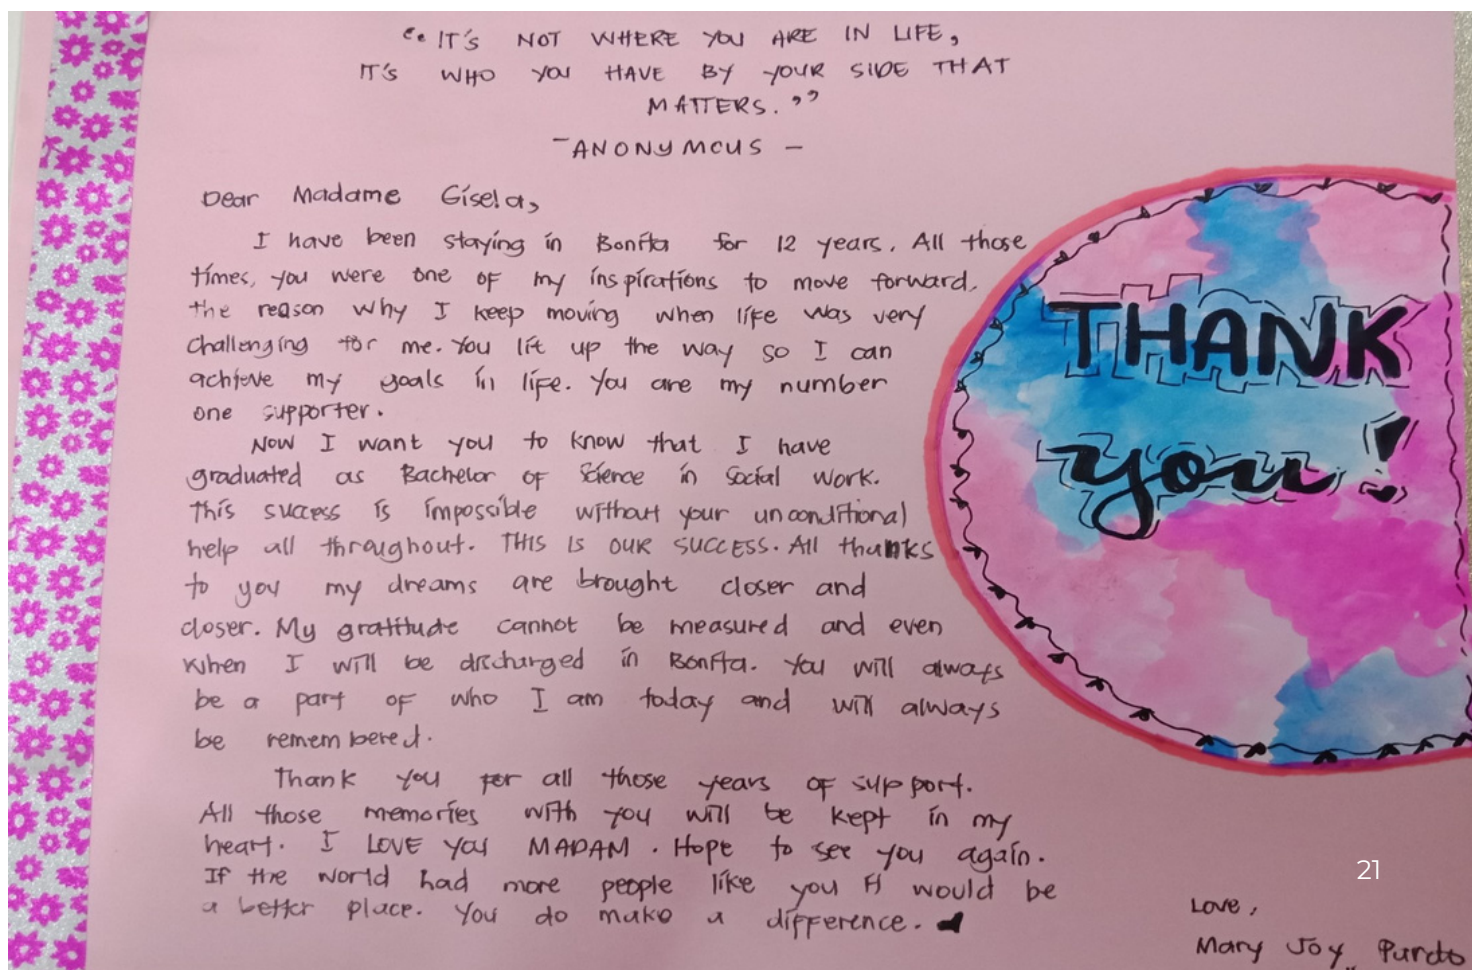 “IT'S NOT WHERE YOU ARE IN LIFE,
IT'S WHO YOU HAVE BY YOUR SIDE THAT
MATTERS.”
-ANONYMOUS -
Dear Madame Gisela,
I have been staying in Bonita for 12 years. All those
times, you were one of my inspirations to move forward.
the reason why I keep moving when life was very
challenging for me. You lit up the way so I can
achieve my goals in life. You are my number
one supporter.
Now I want you to know that I have
graduated as Bachelor of Science in Social Work.
This success is impossible without your unconditional
help all throughout. THIS IS OUR SUCCESS. All thanks
to you my dreams are brought closer and
closer. My gratitude cannot be measured and even
when I will be discharged in Bonita. You will always
be a part of who I am today and will always
be remembered.
Thank you for all those years of support.
All those memories with you will be kept in my
heart. I LOVE YOU MADAM. Hope to see you again.
If the world had more people like you it would be
a better place. You do make a difference.
Love,
Mary Joy Purdo
THANK
you!
21